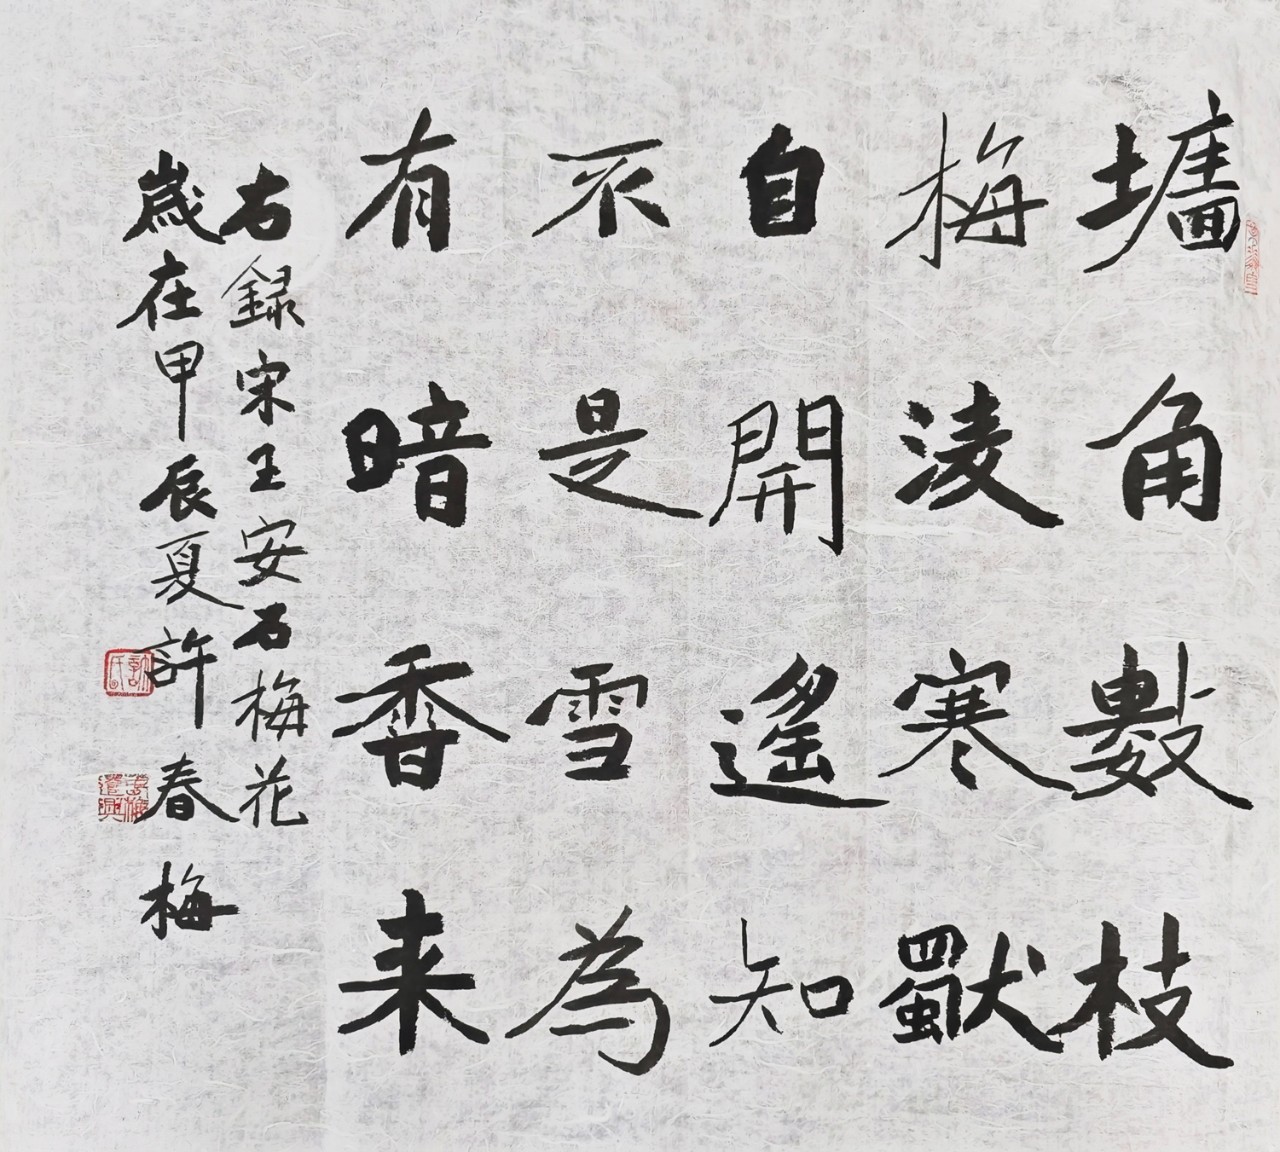 墻角數枝
梅淩寒獨
自開遙知
不是雪為
有暗香来
右錄宋王安石梅花
歲在甲辰夏許春梅
許氏